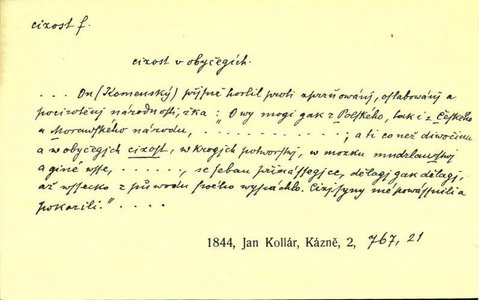 cizost f.
cizost v obyčegích.
. . . On (Komenský) přjsně horlil proti zprzňowánj, oslabowánj a
pocizotěnj národnosti, řka: "O wy mogi gak z Polského, tak i z Českého
a Morawského národu, . . . . . . . . . . ; a ti co než diwočinu
a w obyčegjch cizost, w krogjch potwornost, w mozku mudrlanstwj
a giné wsse, . . . . . . , se sebau přinássegjce, dělagj gak dělagj,
až wssecko z půwodu swého wypáchlo. Cizj syny mé powássnili a
pokazili." . . . .
1844, Jan Kollár, Kázně, 2, 767, 21